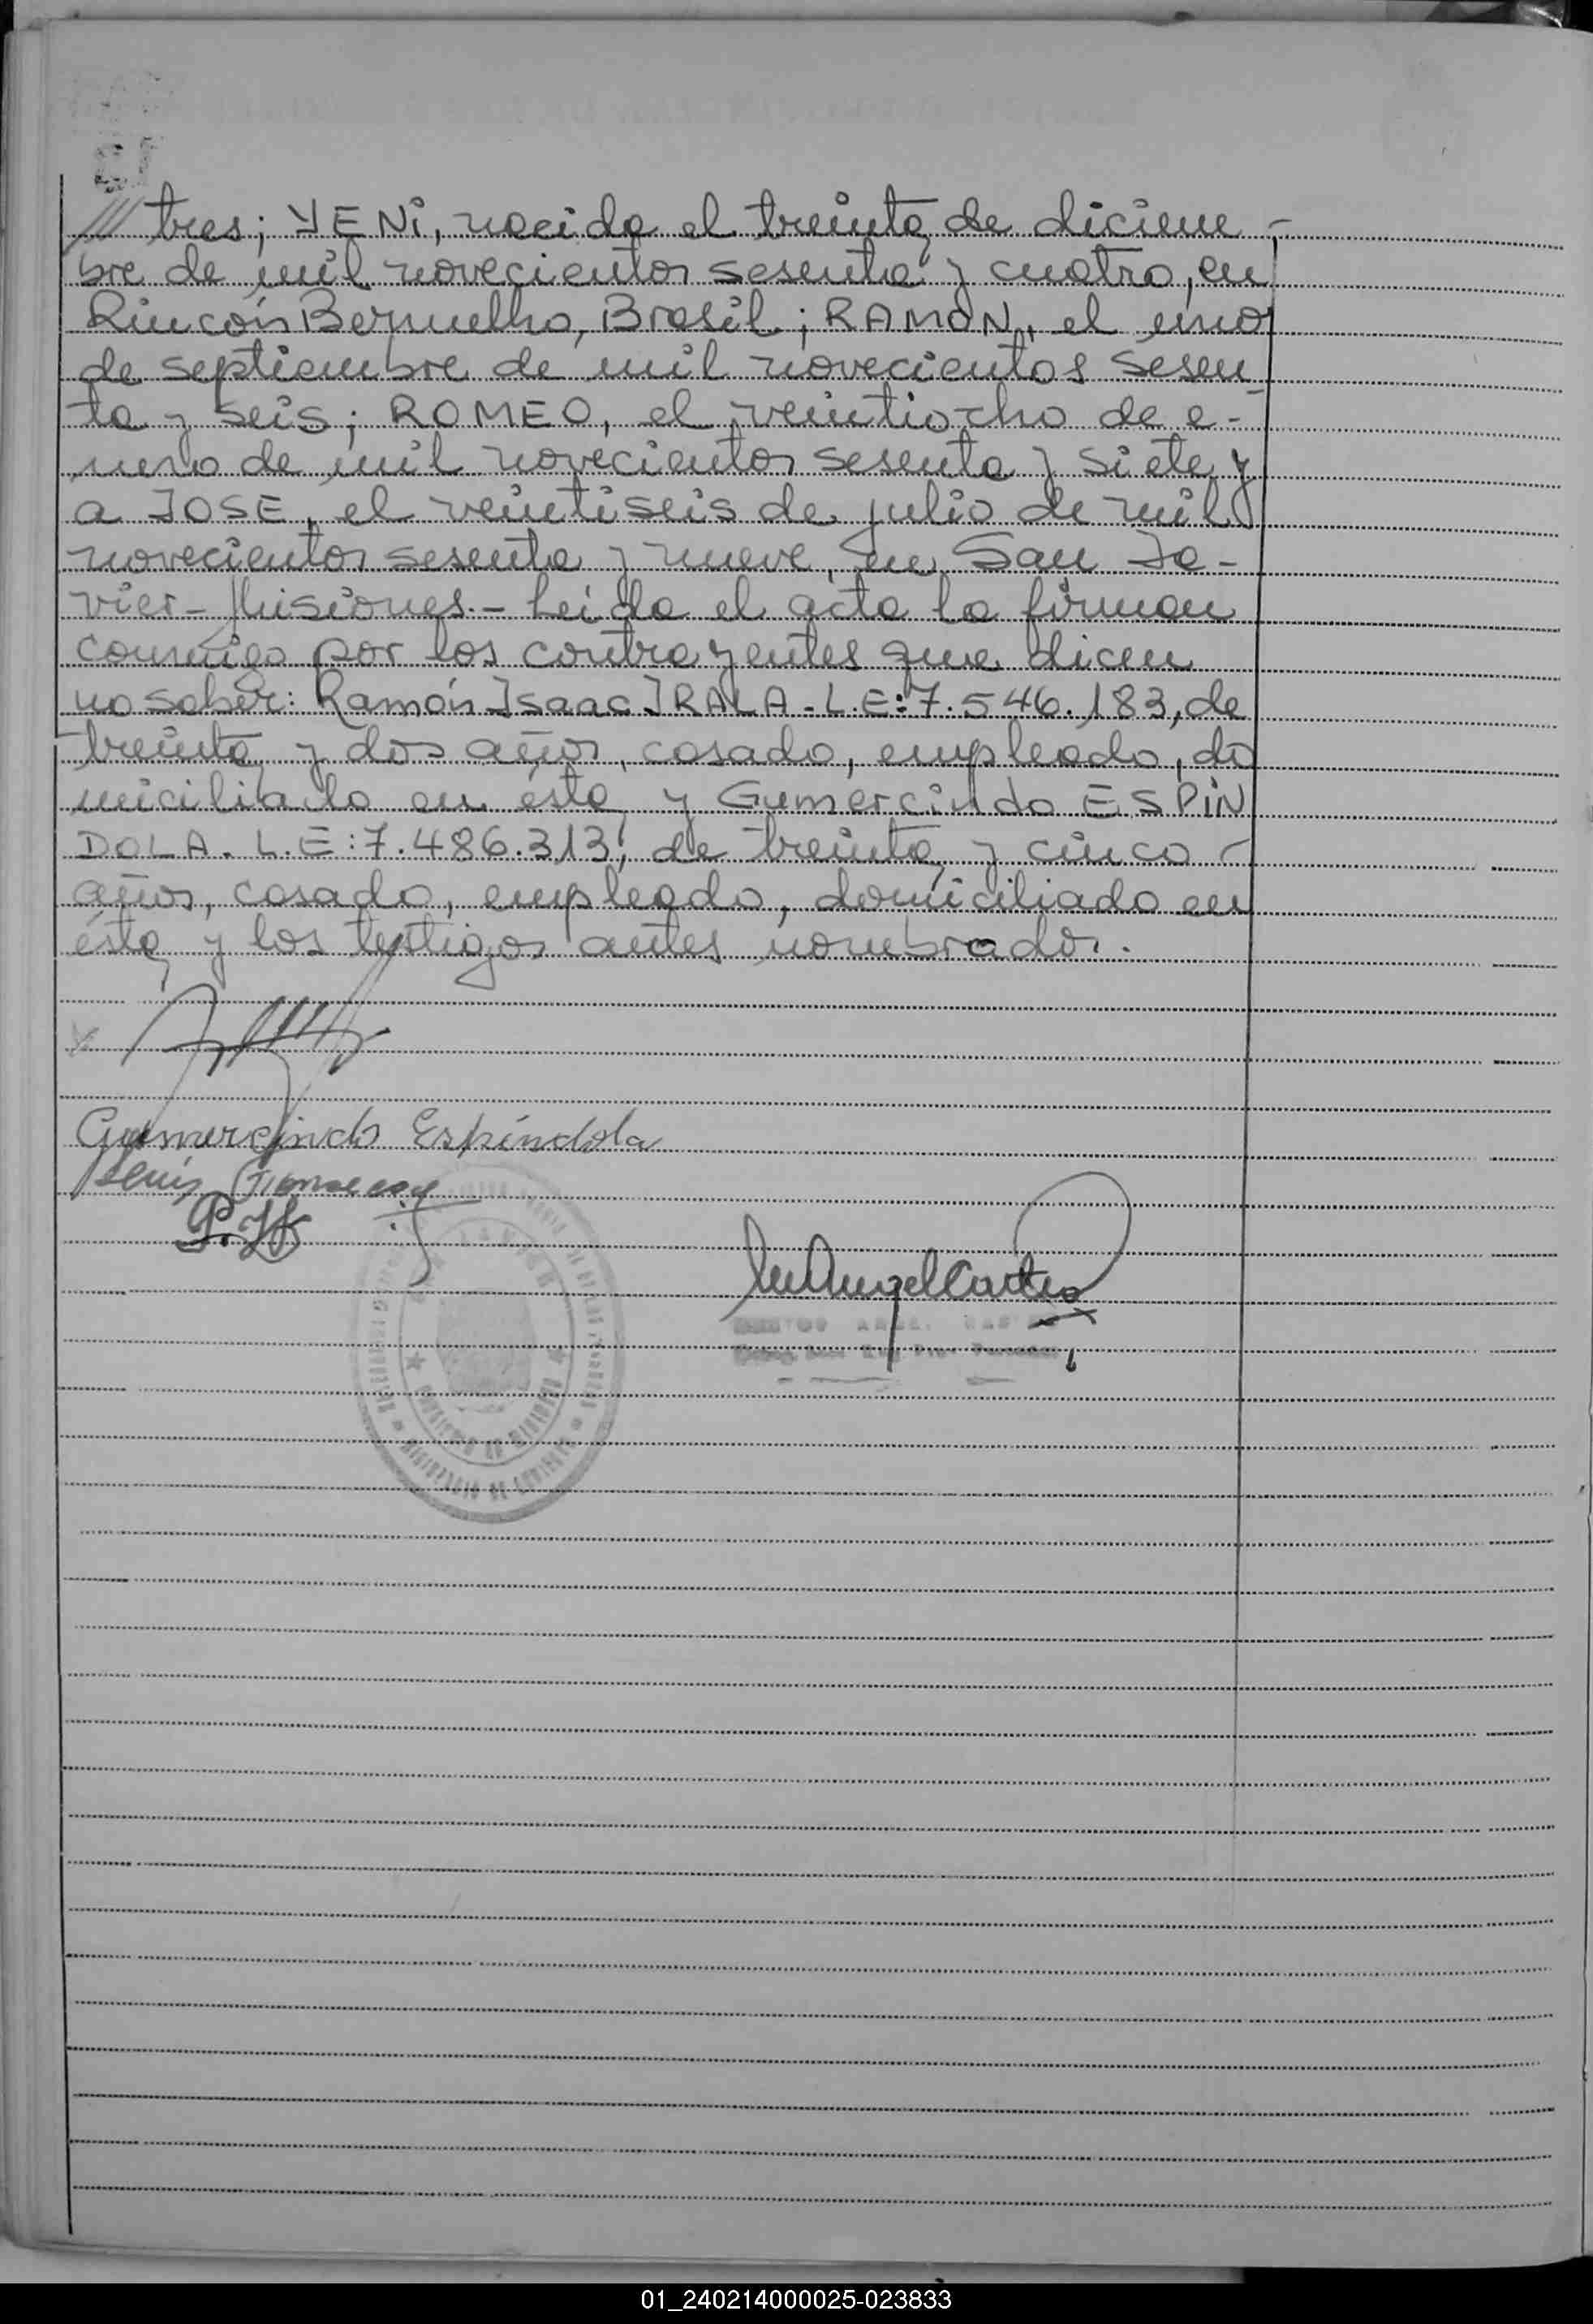 /// tres; YENI, nacida el treinta de diciem-
bre de mil novecientos sesenta y cuatro, en
Rincón Bermelho, Brasil; RAMON, el uno
de septiembre de mil novecientos sesen
ta y seis; ROMEO, el veintiocho de e-
nero de mil novecientos sesenta y siete y
a JOSE, el veintiseis de julio de mil
novecientos sesenta y nueve, en San Ja-
vier - Misiones.- Leída el acta la firman
conmigo por los contrayentes que dicen
no saber: Ramón Isaac IRALA. L.E: 7.546.183, de
treinta y dos años, casado, empleado, do
miciliado en ésta y Gumercindo ESPIN
DOLA. L.E: 7.486.313, de treinta y cinco -
años, casado, empleado, domiciliado en
ésta y los testigos antes nombrados.
Gumercindo Espíndola
01_240214000025-023833